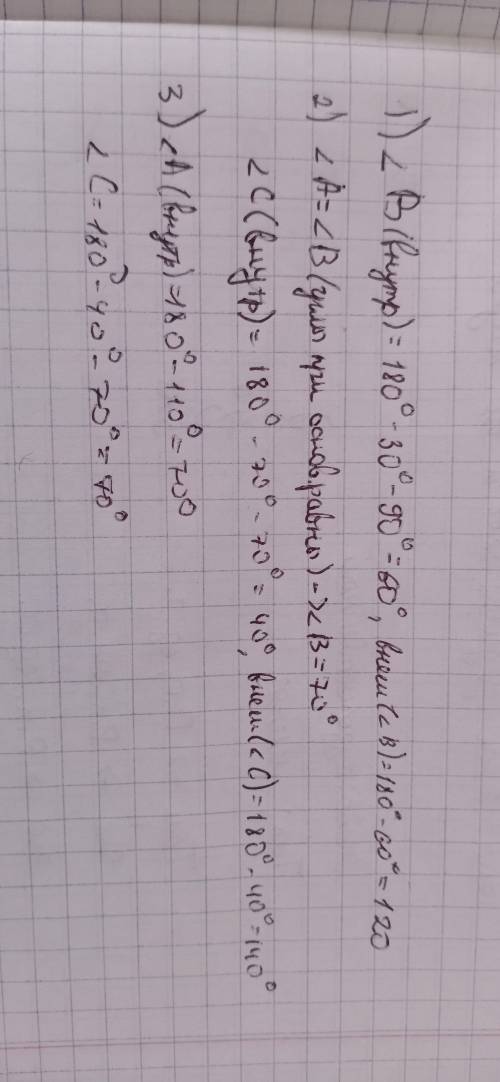 1) ∠B(внутр)=180°-30°-90°=60°, внеш(∠B)=180°-60°=120
2) ∠A=∠B(углы при основ.равны)->∠B=70°
∠C(внутр)=180°-70°-70°=40°, внеш(∠C)=180°-40°=140°
3) ∠A(внутр)=180°-110°=70°
∠C=180°-40°-70°=70°